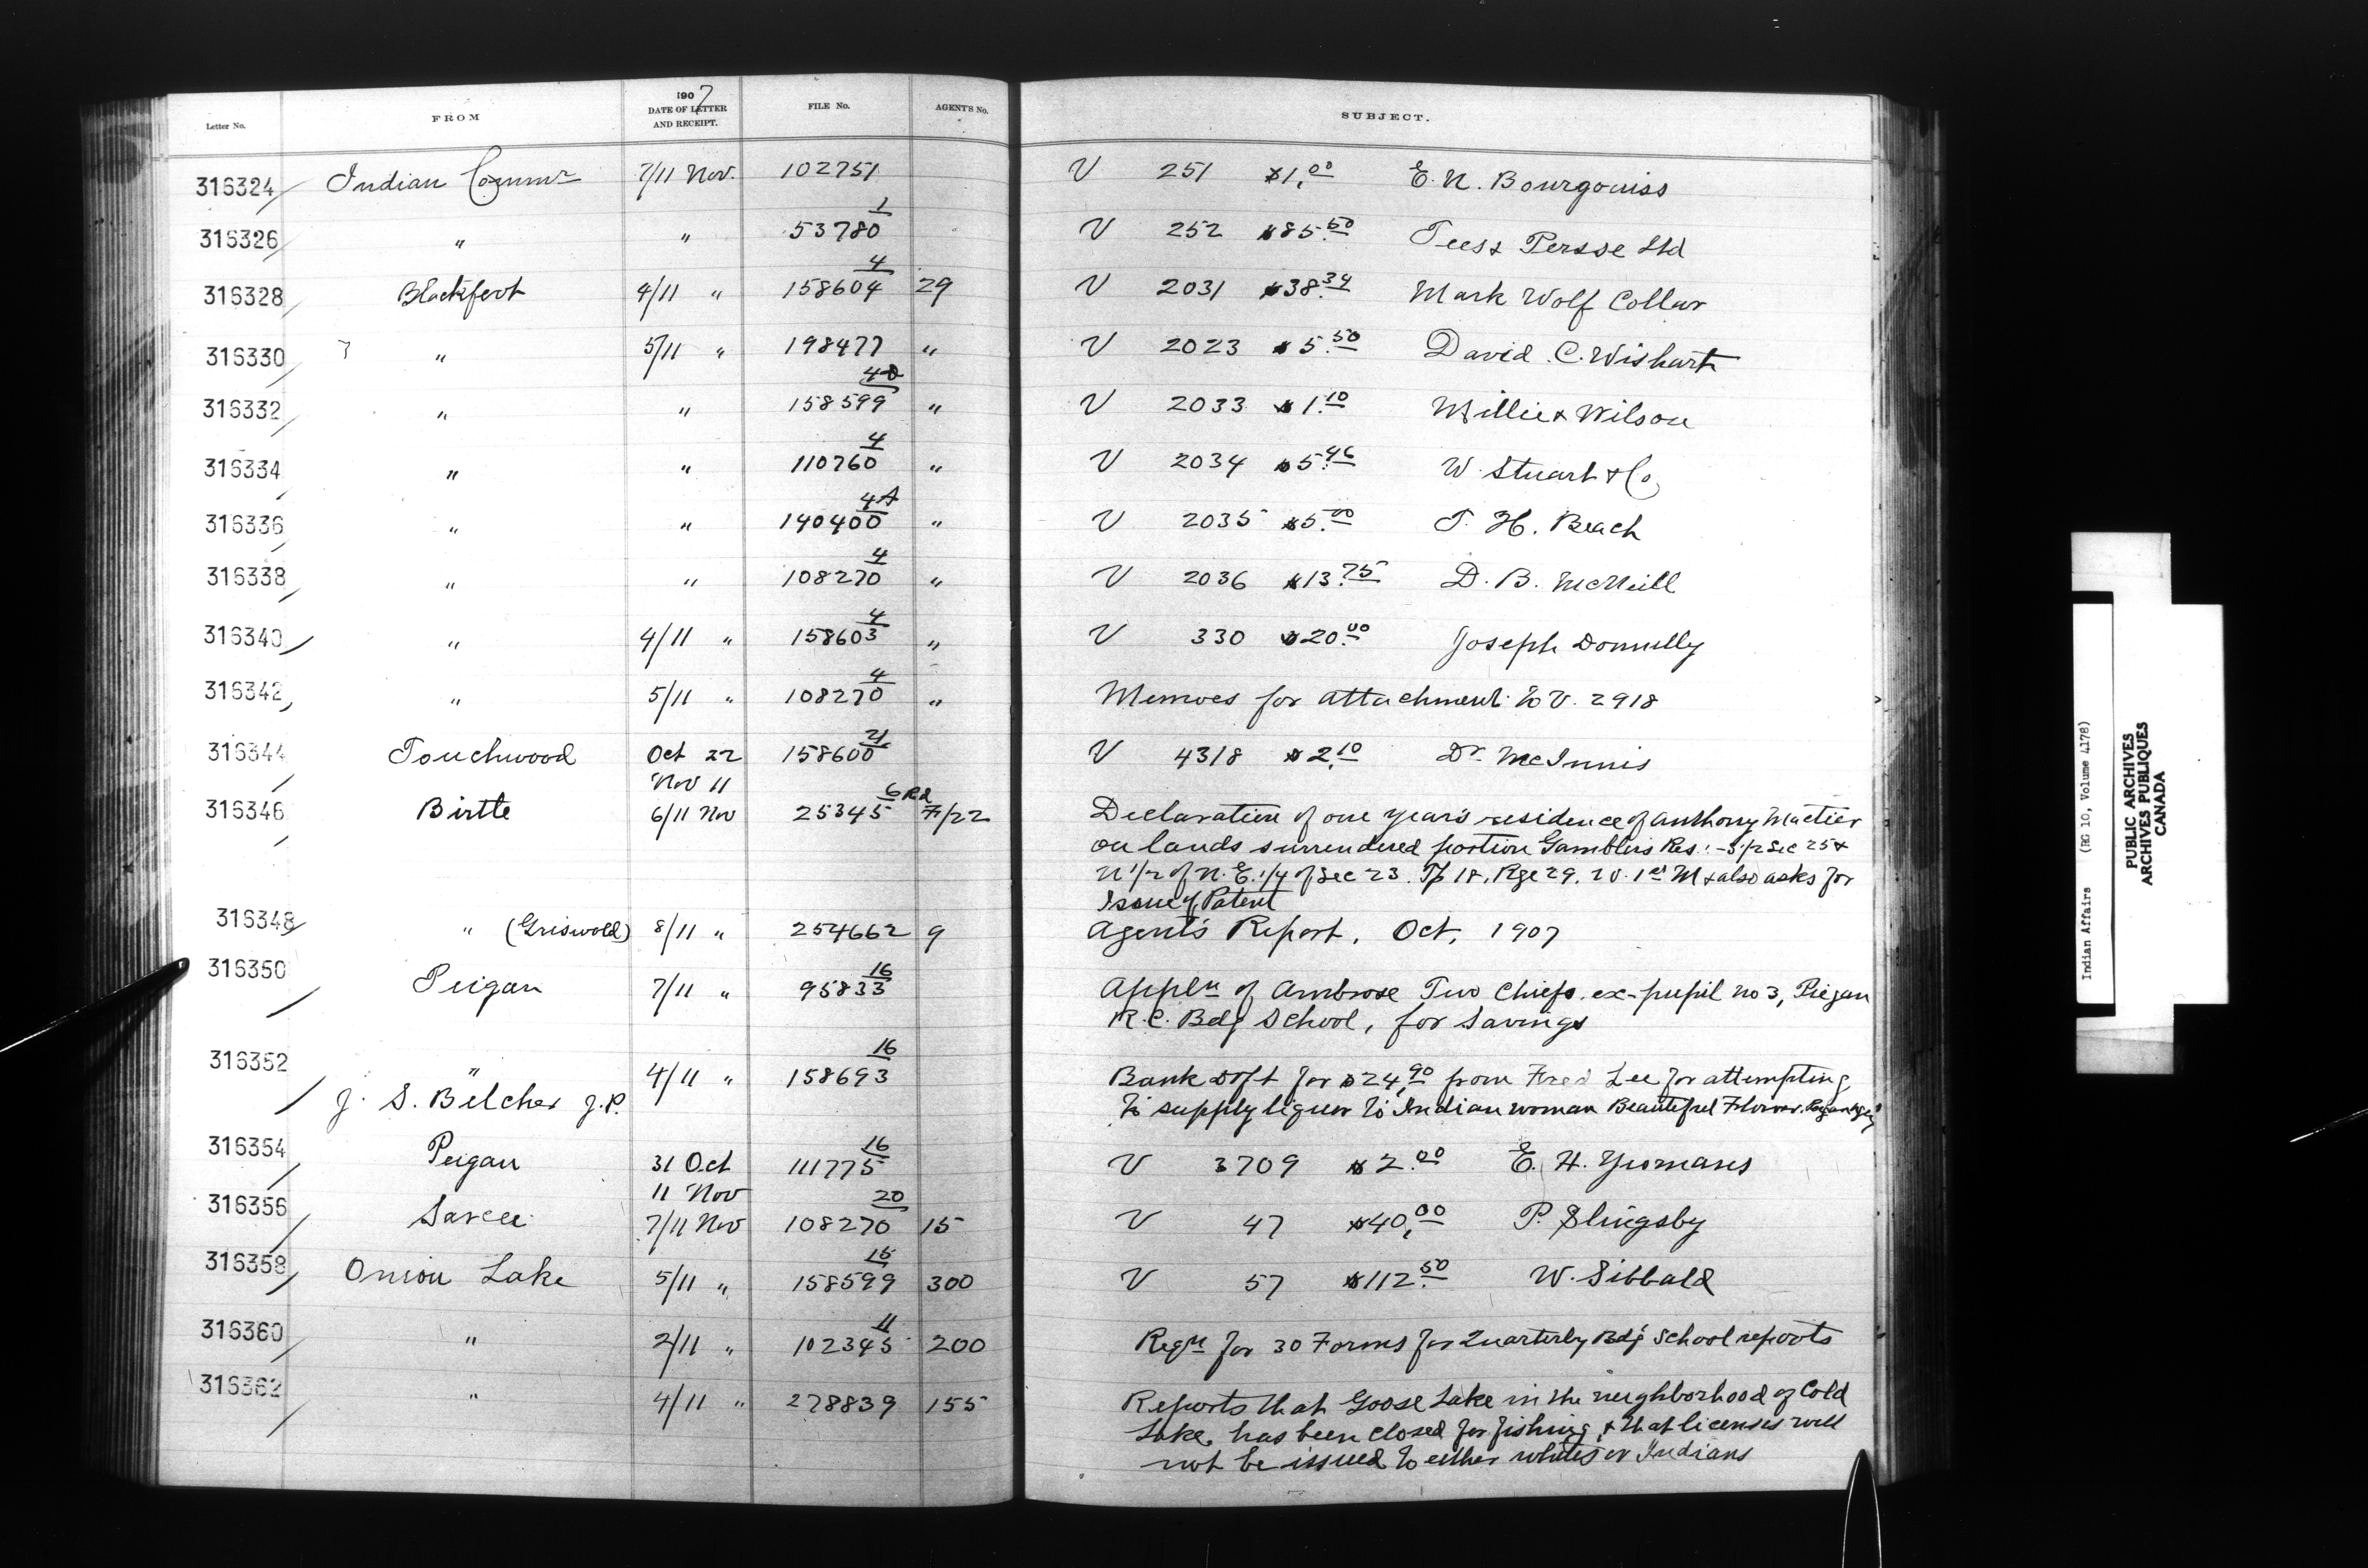 1907
Letter No. FROM DATE OF LETTER AND RECEIPT. FILE No. AGENT'S No. SUBJECT.
316324 Indian Commr 7/11 Nov. 102751 V 251 $1.00 E. N. Bourgouiss
316326 " " 53780 1 V 252 $85.50 Tees & Persse Ltd
316328 Blackfoot 4/11 " 158604 4 29 V 2031 $38.34 Mark Wolf Collar
316330 " 5/11 " 198477 " V 2023 $5.50 David C. Wishart
316332 " " 158599 4D " V 2033 $1.10 Willie & Wilson
316334 " " 110760 4 " V 2034 $5.46 W. Stuart & Co
316336 " " 140400 4A " V 2035 $5.00 T. H. Beach
316338 " " 108270 4 " V 2036 $13.75 D. B. McNeill
316340 " 4/11 " 158603 4 " V 330 $20.00 Joseph Donnelly
316342 " 5/11 " 108270 4 " Memoes for attachment to V. 2918
316344 Touchwood Oct 22 158600 21 V 4318 $2.10 Dr McInnis
Nov 11
316346 Birtle 6/11 Nov 25345 6 Rd F/22 Declaration of one year's residence of Anthony Mactier
on lands surrendered portion Gamblers Res: - S 1/2 Sec 25 &
N 1/2 of N.E. 1/4 of Sec 23. Tp 18, Rge 29. W. 1st M & also asks for
Issue of Patent
316348 " (Griswold) 8/11 " 254662 9 Agent's Report, Oct, 1907
316350 Peigan 7/11 " 95833 16 Appln of Ambrose Two Chiefs, ex-pupil no 3, Piegan
R. C. Bdg School, for Savings
316352 " 4/11 " 158693 16 Bank Dft for $24.90 from Fred Lee for attempting
J. S. Belcher J.P. to supply liquor to Indian woman Beautiful Flower.
316354 Peigan 31 Oct 111775 16 V 3709 $2.00 E. H. Yeomans
11 Nov
316356 Sarcee 7/11 Nov 108270 20 15 V 47 $40.00 P. Slingsby
316358 Onion Lake 5/11 " 158599 15 300 V 57 $112.50 W. Sibbald
316360 " 2/11 " 102345 11 200 Reqn for 30 Forms for Quarterly Bdg School reports
316362 " 4/11 " 278839 155 Reports that Goose Lake in the neighborhood of Cold
Lake, has been closed for fishing, & that licenses will
not be issued to either whites or Indians
Indian Affairs (RG 10, Volume 4178)
PUBLIC ARCHIVES
ARCHIVES PUBLIQUES
CANADA